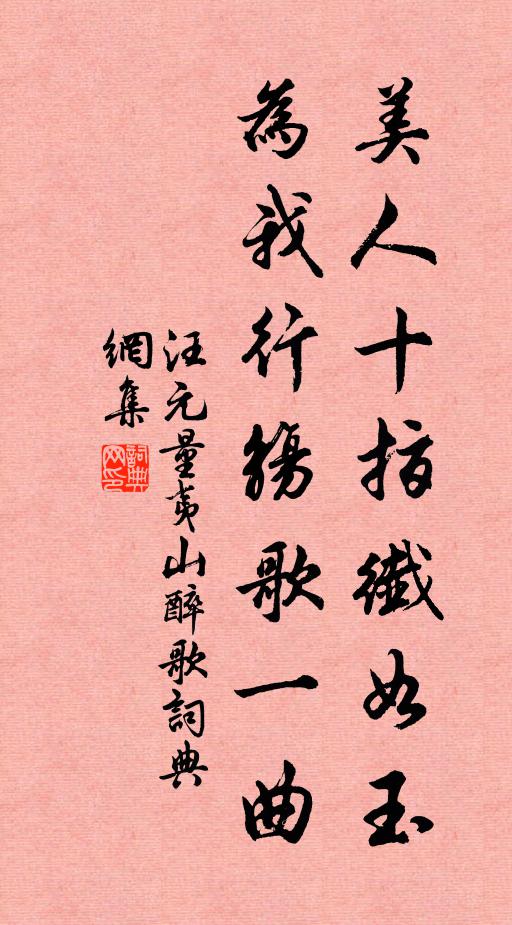 美人十指纖如玉
為我行觴歌一曲
汪元量夷山醉歌詞典
網集
詞典
网印